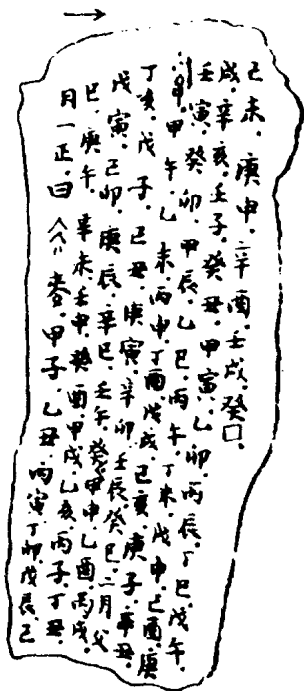 月一正.曰 麥.甲子.乙丑.丙寅丁卯戊辰.己
巳.庚午.辛未.壬申.癸酉甲戌.乙亥丙子丁丑.
戊寅.己卯.庚辰.辛巳.壬午.癸 甲申.乙酉.丙戌.
丁亥.戊子.己丑.庚寅.辛卯壬辰癸巳.二月父
甲午.乙未.丙申丁酉.戊戌.己亥.庚子.辛丑.
壬寅.癸卯.甲辰.乙巳.丙午.丁未.戊申.己酉.庚
戌.辛亥.壬子.癸丑.甲寅.乙卯.丙辰.丁巳.戊午.
己未.庚申.辛酉.壬戌.癸口.